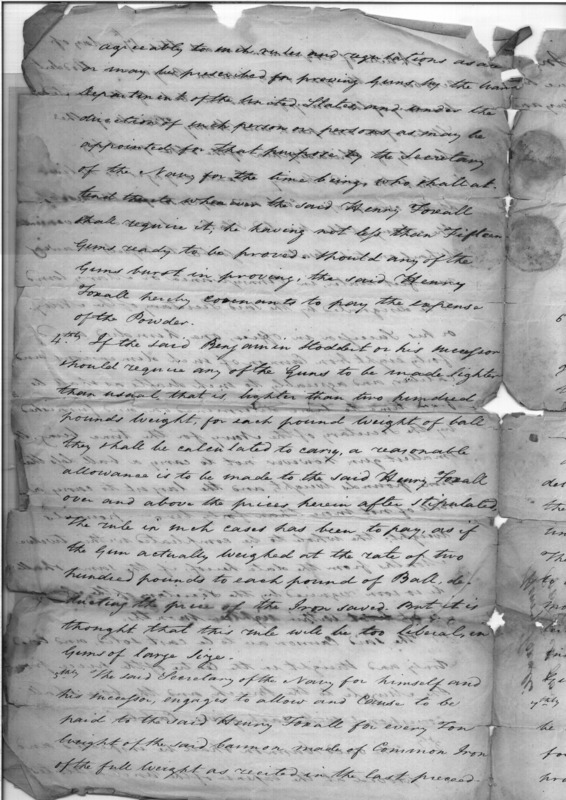 agreeably to such rules and regulations as are
or may be prescribed for proving Guns by the
Department of the United States and under the
direction of such person or persons as may be
appointed for that purpose by the Secretary
of the Navy for the time being, who shall at-
tend whenever the said Henry Foxall
shall require it, he having not less than Fifteen
Guns ready to be proved. should any of the
Guns burst in proving, the said Henry
Foxall hereby covenants to pay the expense
of the Powder.
4thly If the said Benjamin Stoddert or his successor
should require any of the Guns to be made lighter
than usual, that is, lighter than two hundred
pounds weight, for each pound weight of ball
they shall be calculated to carry, a reasonable
allowance is to be made to the said Henry Foxall
over and above the prices herein after stipulated
The rule in such cases has been to pay, as if
the Gun actually weighed at the rate of two
hundred pounds to each pound of Ball, de-
ducting the price of the Iron saved. But it is
thought that this rule will be too liberal, in
Guns of large size.
thly The said Secretary of the Navy for himself and
his successor, engages to allow and cause to be
paid to the said Henry Foxall for every Ton
weight of the said Cannon made of Common Iron
of the full weight as recited in the last preceed-